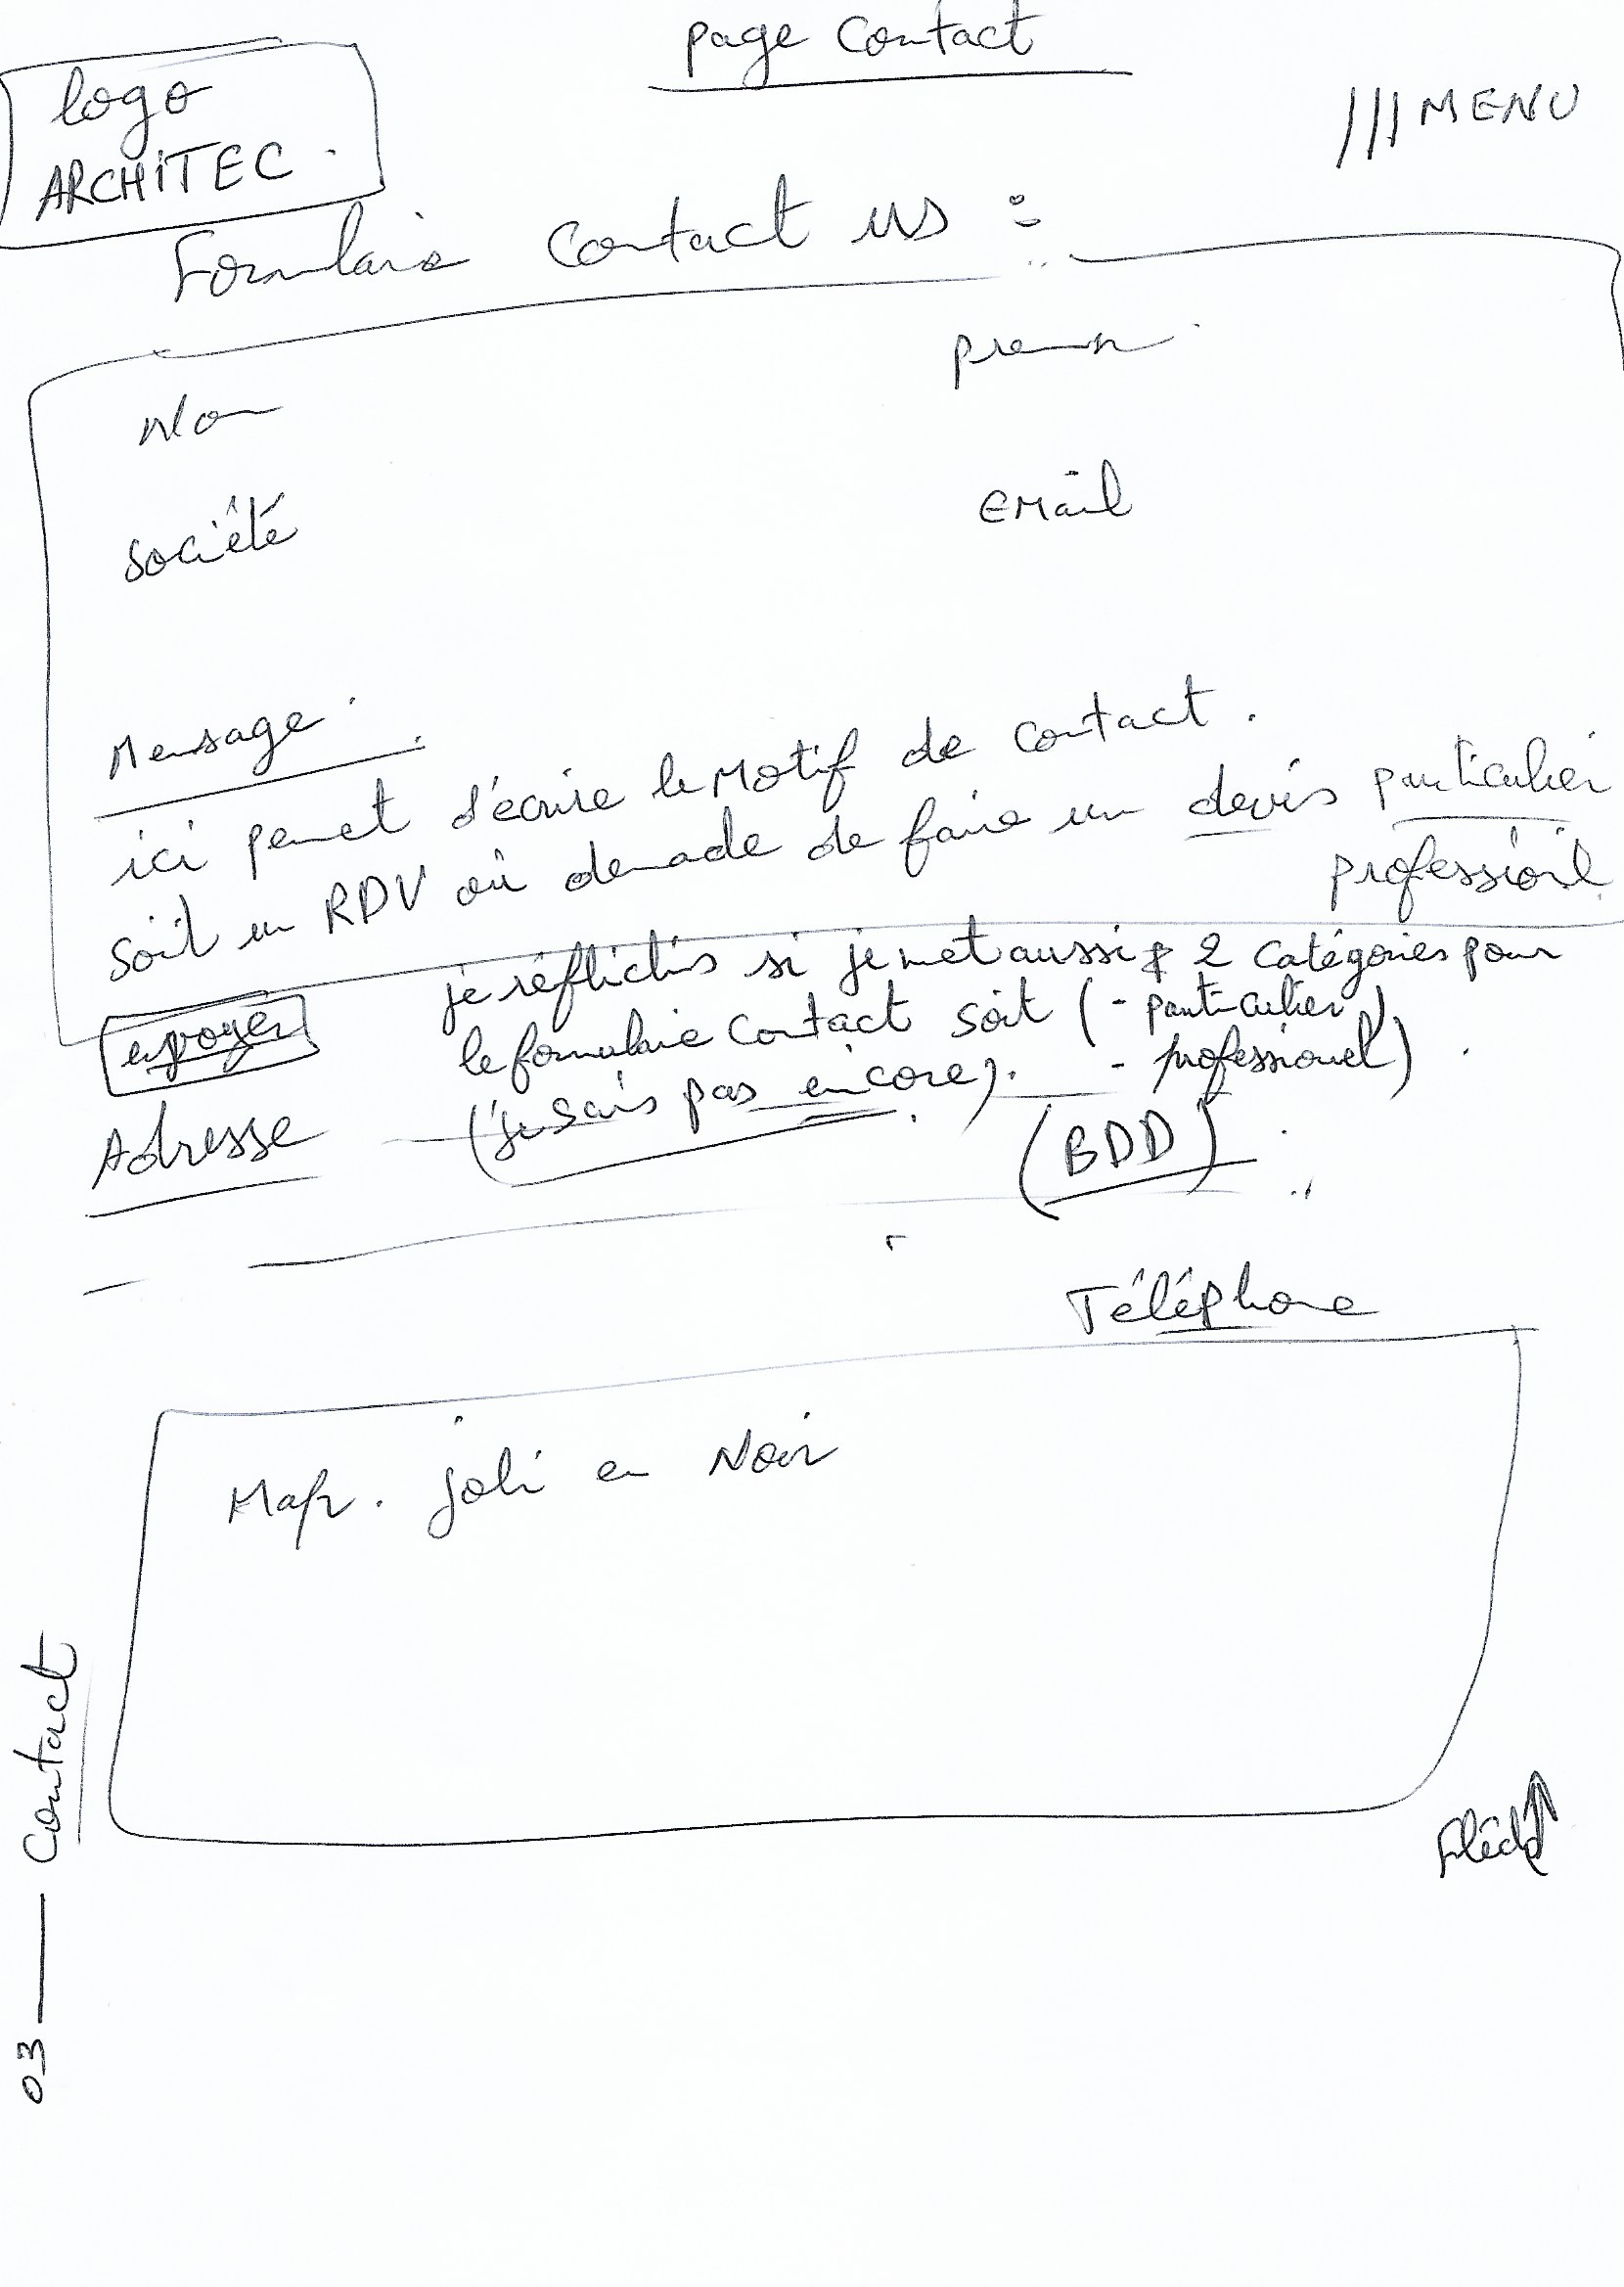 page Contact
logo
ARCHiTEC.
MENU
Formulaire Contact us :
Nom
prenom
société
EMail
Message.
ici permet d'écrire le Motif de contact.
soit un RDV où demade de faire un devis particulier
professionl
je réflichis si je met aussi 2 catégories pour
le formulaire Contact soit (- particulier)
- professionel).
(je sais pas encore).
envoyer
(BDD)
Adresse
Téléphone
Map. joli en Noir
Fléche
03 — Contact